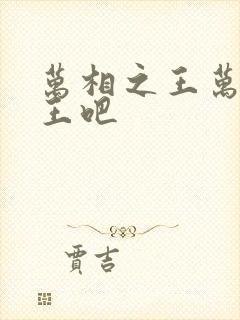 萬相之王萬
王吧
賈吉